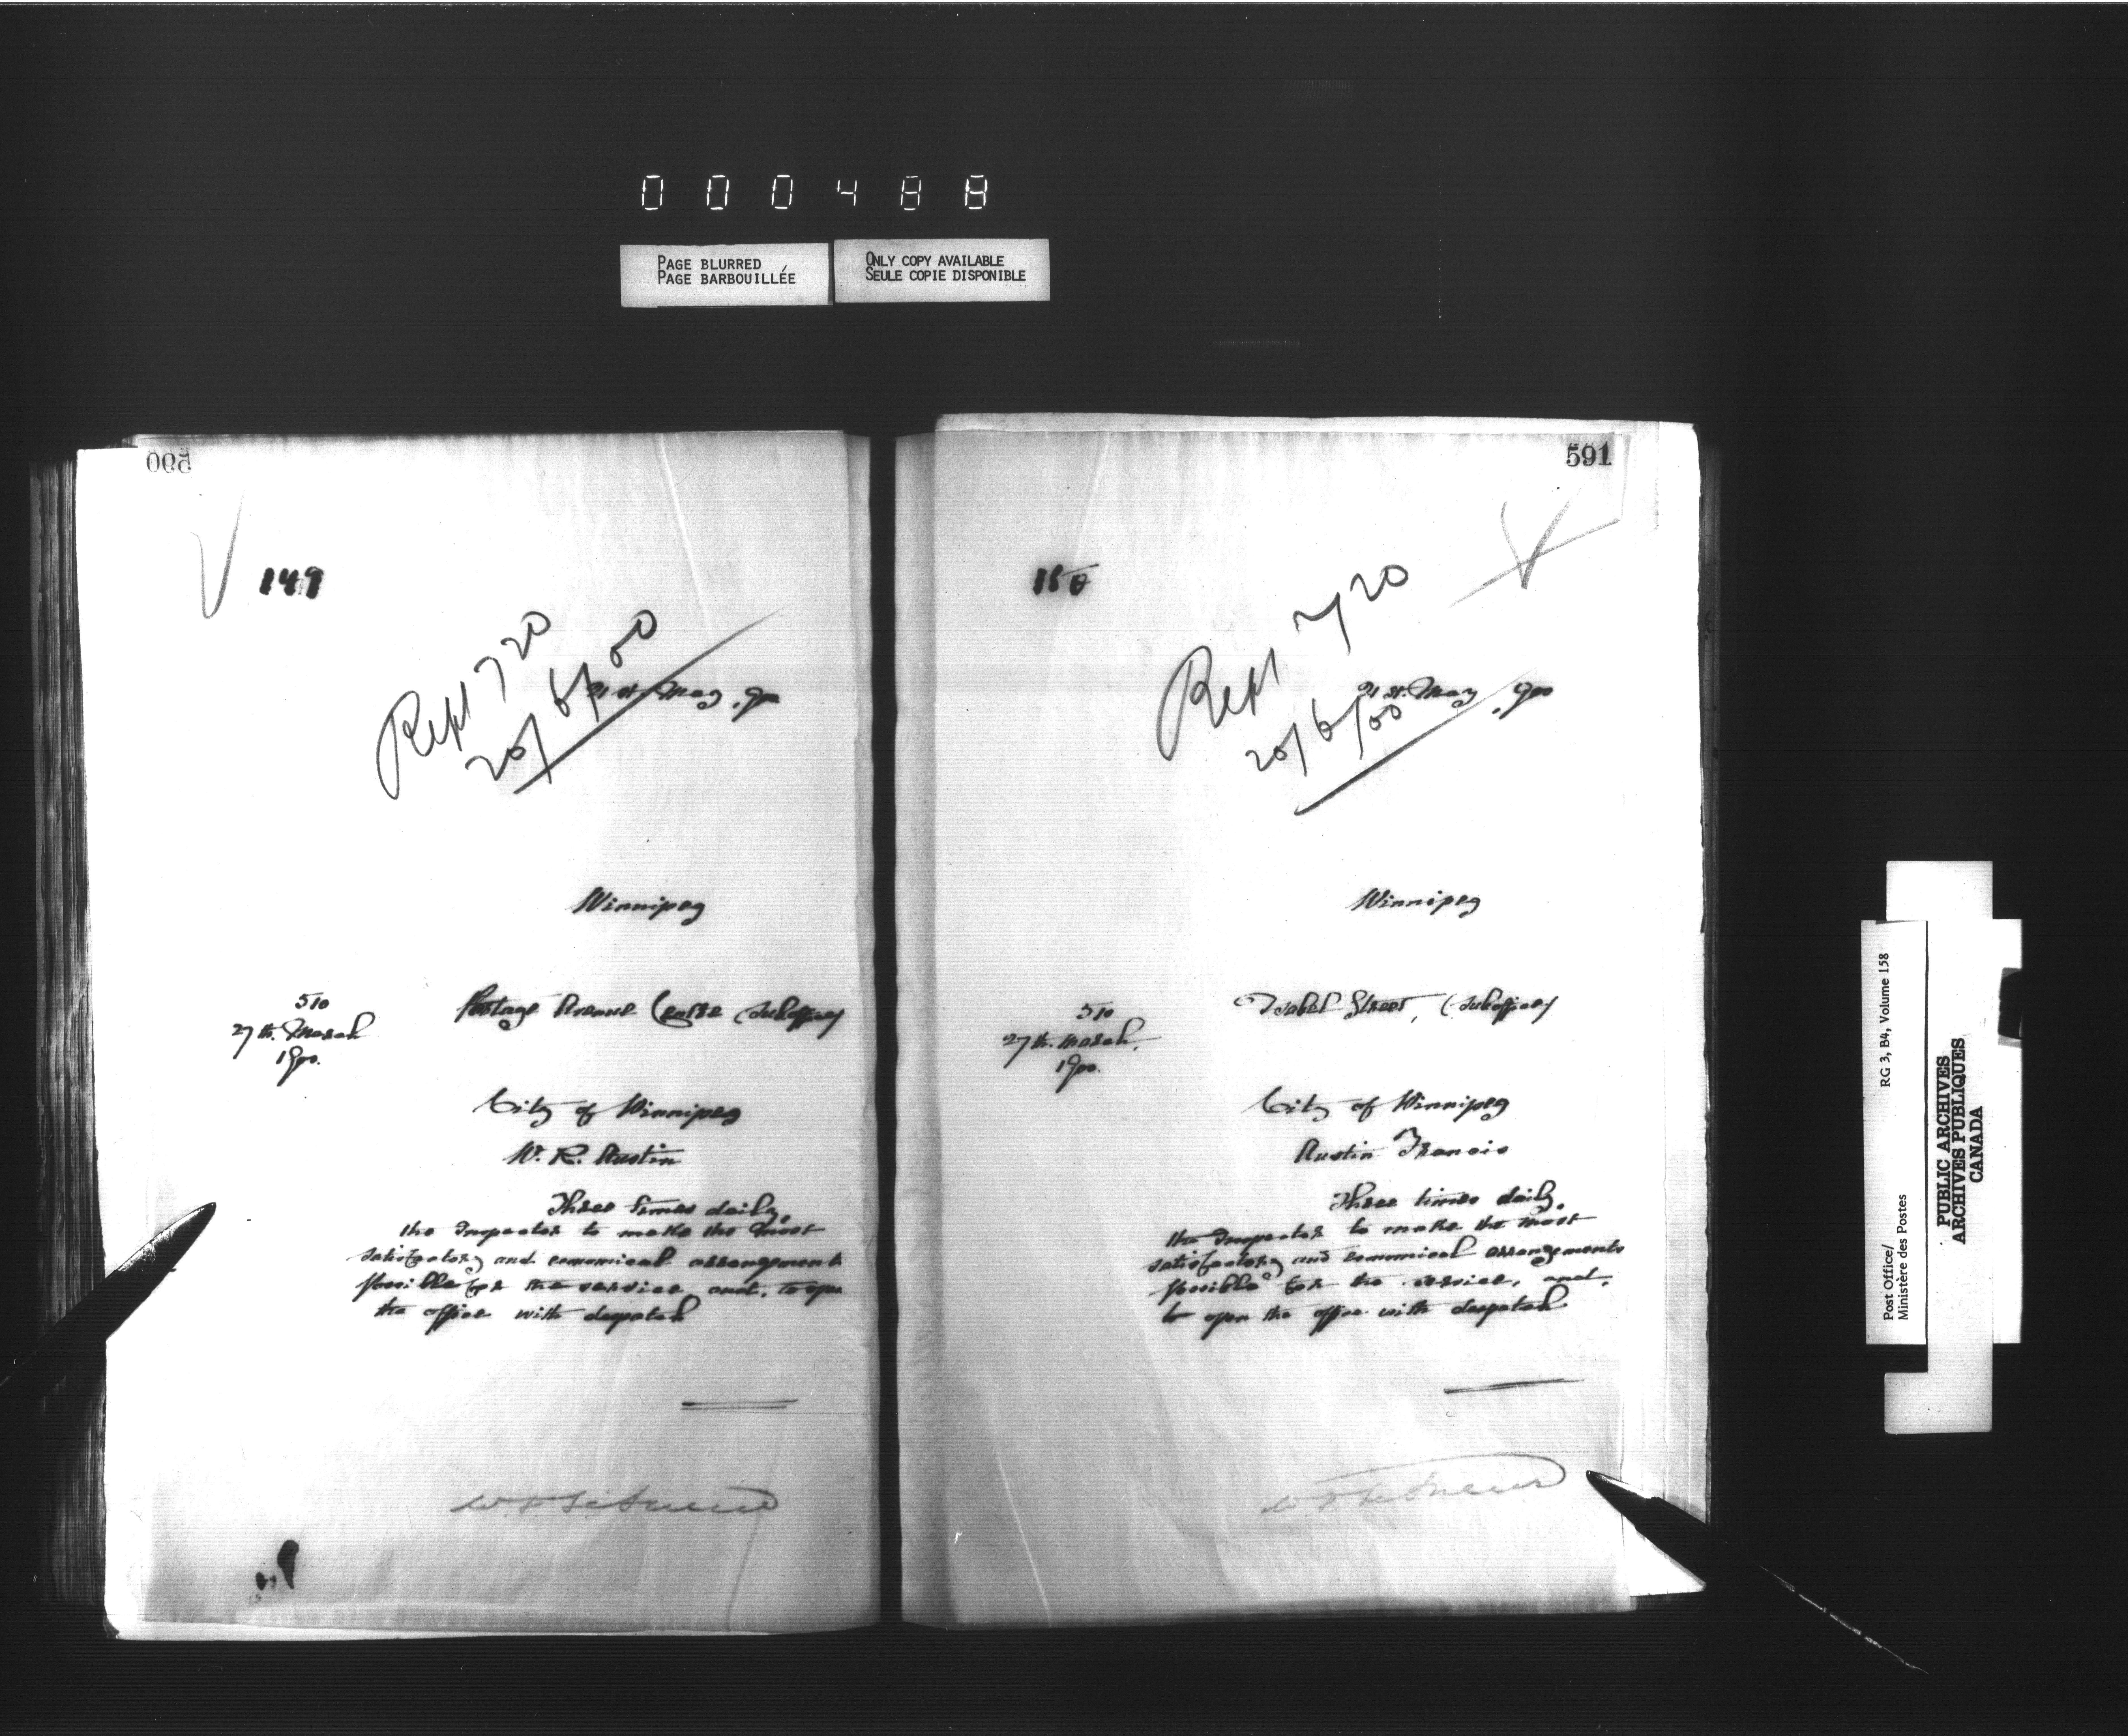 000488
PAGE BLURRED
PAGE BARBOUILLÉE
ONLY COPY AVAILABLE
SEULE COPIE DISPONIBLE
590
149
Rept 720
20/6/00
21st May, 900
Winnipeg
510
27th. March
1900.
Portage Avenue Centre (suboffice)
City of Winnipeg
W. R. Austin
Three times daily,
the Inspector to make the most
satisfactory and economical arrangements
possible for the service and, to open
the office with despatch
591
150
Rept 720
20/6/00
21st. May, 900
Winnipeg
510
27th. March,
1900.
Isabel Street, (suboffice)
City of Winnipeg
Austin Francis
Three times daily,
the Inspector to make the most
satisfactory and economical arrangements
possible for the service, and,
to open the office with despatch
Post Office/
Ministère des Postes
RG 3, B4, Volume 158
PUBLIC ARCHIVES
ARCHIVES PUBLIQUES
CANADA